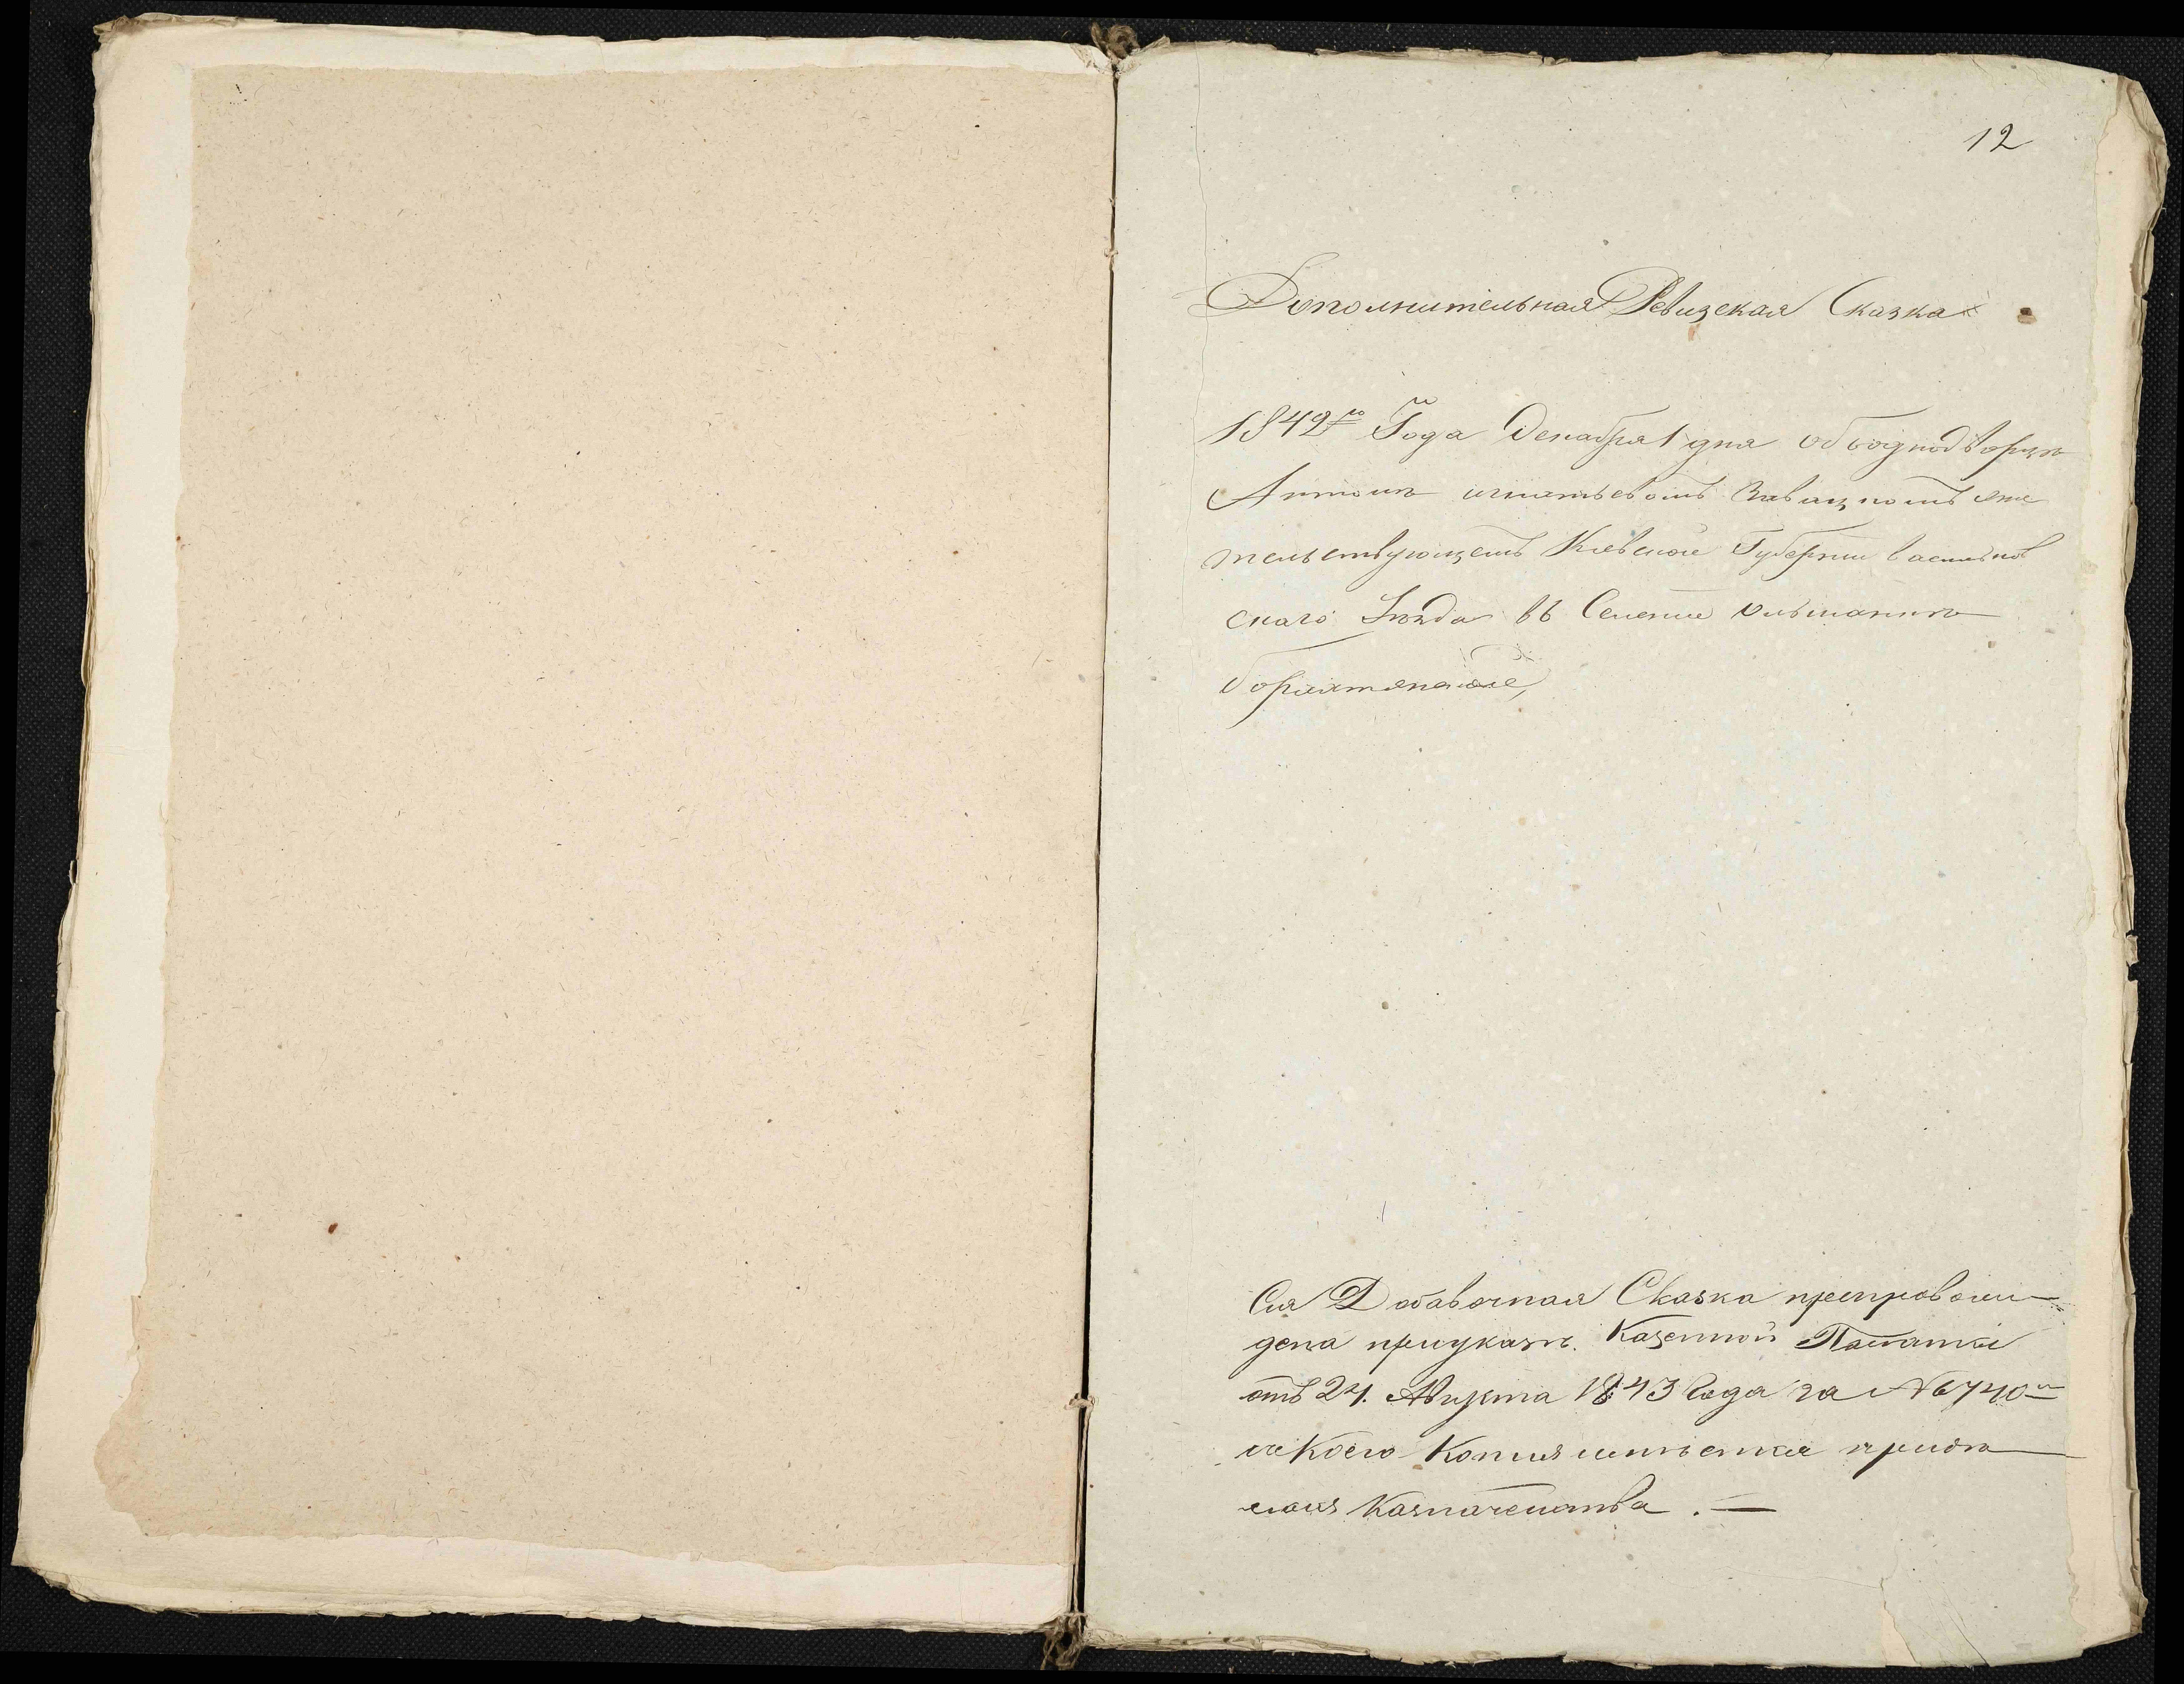 12
Дополнительная Ревизская Сказка
1842го Года Декабря 1 дня об однодворце
Антоне игнатьевомъ Завацкомъ жи
тельствующемъ Кіевской Губерніи васильков
скаго Уезда въ Селеніе ольшанке
Сия Добавочная Сказка препровож
дена при указе Казенной Палаты
отъ 24. Августа 1843 Года за № 6740
с коего Копия
Казначейства.